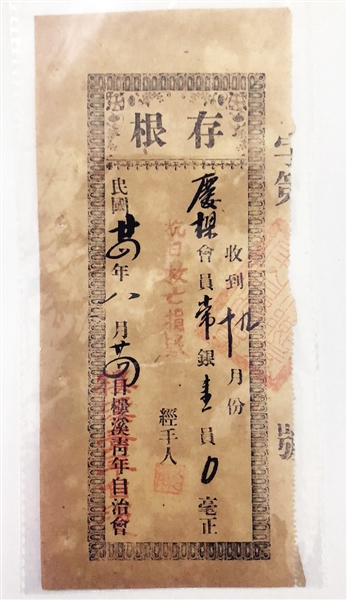 字第
號
存根
收到 月份
會員常銀壹員0毫正
抗日救亡捐款
經手人
民國廿四年八月廿四日 溪青年自治會